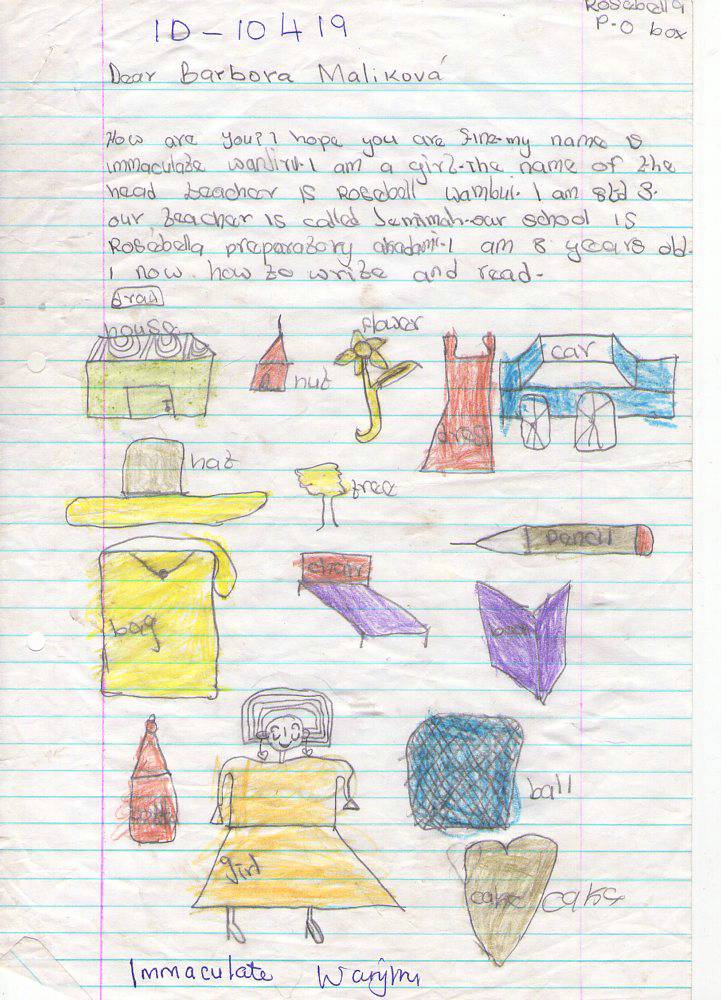 Rosebella
P-O box
ID-10419
Dear Barbora Maliková
How are you? I hope you are fine. my name is
immaculate wanjiru. I am a girl. the name of the
head teacher is Rosebell wambui. I am std 3.
our teacher is called Jemimah. our school is
Rosebella preparatory I am 8 years old.
I now how to write and read.
house
flower
car
hut
dress
hat
tree
pencil
chair
bag
book
ball
girl
cake cake
Immaculate Wanjiru